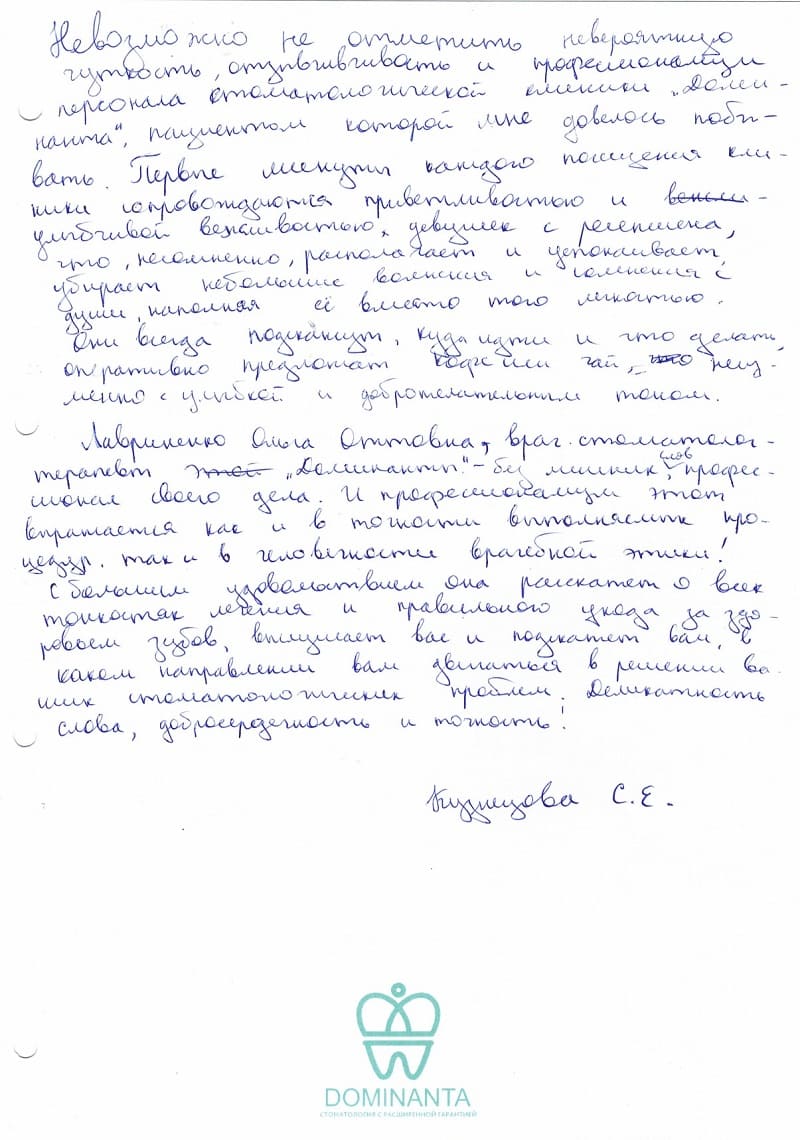 Невозможно не отметить невероятную
чуткость, отзывчивость и профессионализм
персонала стоматологической клиники „Доми-
нанта“, пациентом которой мне довелось побы-
вать. Первые минуты каждого посещения кли-
ники сопровождаются приветливостью и
улыбчивой вежливостью девушек с ресепшена,
что, несомненно, располагает и успокаивает,
убирает небольшие волнения и сомнения с
души, наполняя её вместо того лёгкостью.
Они всегда подскажут, куда идти и что делать,
оперативно предложат кофе или чай,
с улыбкой и доброжелательным тоном.
Лавриненко Ольга Оттовна, врач-стоматолог-
терапевт этой „Доминанты“ – без лишних слов, профес-
сионал своего дела. И профессионализм этот
выражается как и в точности выполняемых про-
цедур, так и в человечности врачебной этики!
С большим удовольствием она расскажет о всех
тонкостях лечения и правильного ухода за здо-
ровьем зубов, выслушает вас и подскажет вам, в
каком направлении вам двигаться в решении ва-
ших стоматологических проблем. Деликатность
слова, добросердечность и точность!
Кузнецова С.Е.
DOMINANTA
СТОМАТОЛОГИЯ С РАСШИРЕННОЙ ГАРАНТИЕЙ